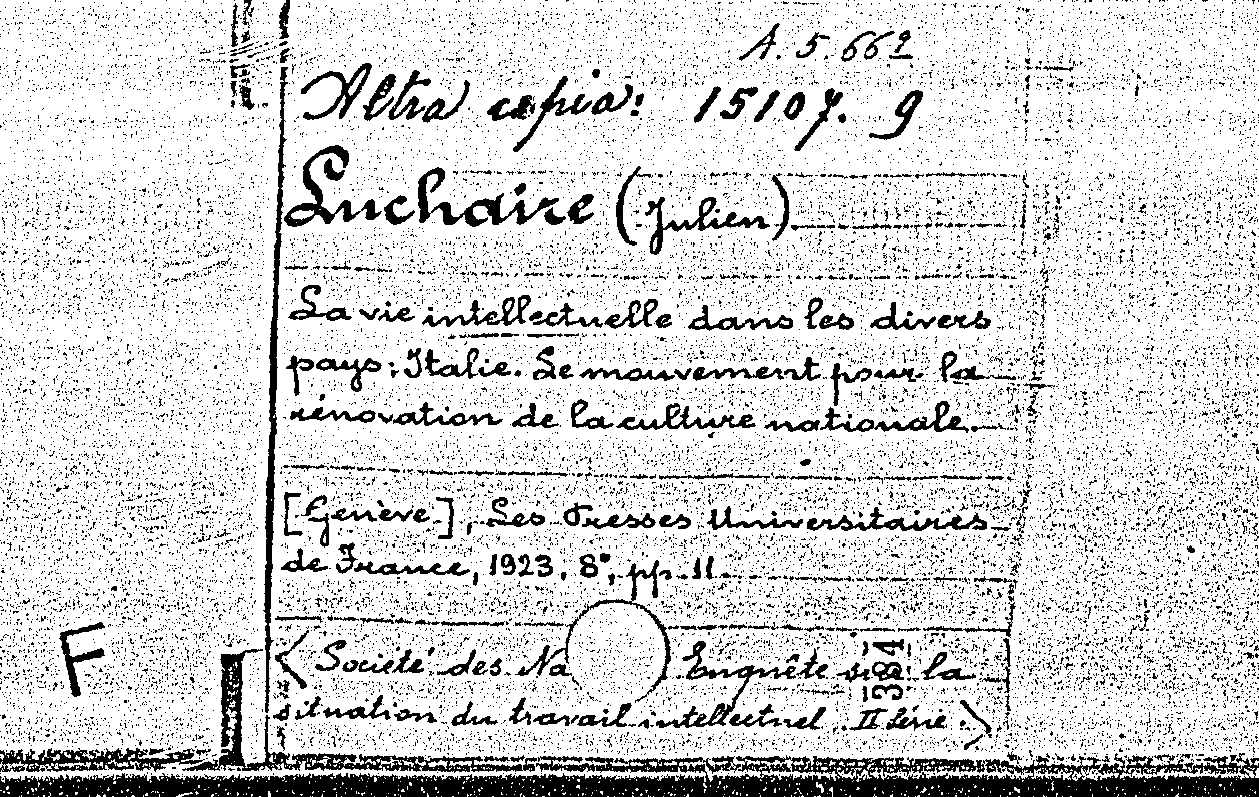 A. 5. 662
Altra copia: 15107. 9
Luchaire (Julien)
La vie intellectuelle dans les divers
pays: Italie. Le mouvement pour la
rénovation de la culture nationale.
[Genève], Les Presses Universitaires
de France, 1923, 8°, pp. 11.
< Société des Na Enquête sur la
384
situation du travail intellectuel. II Série. >
F